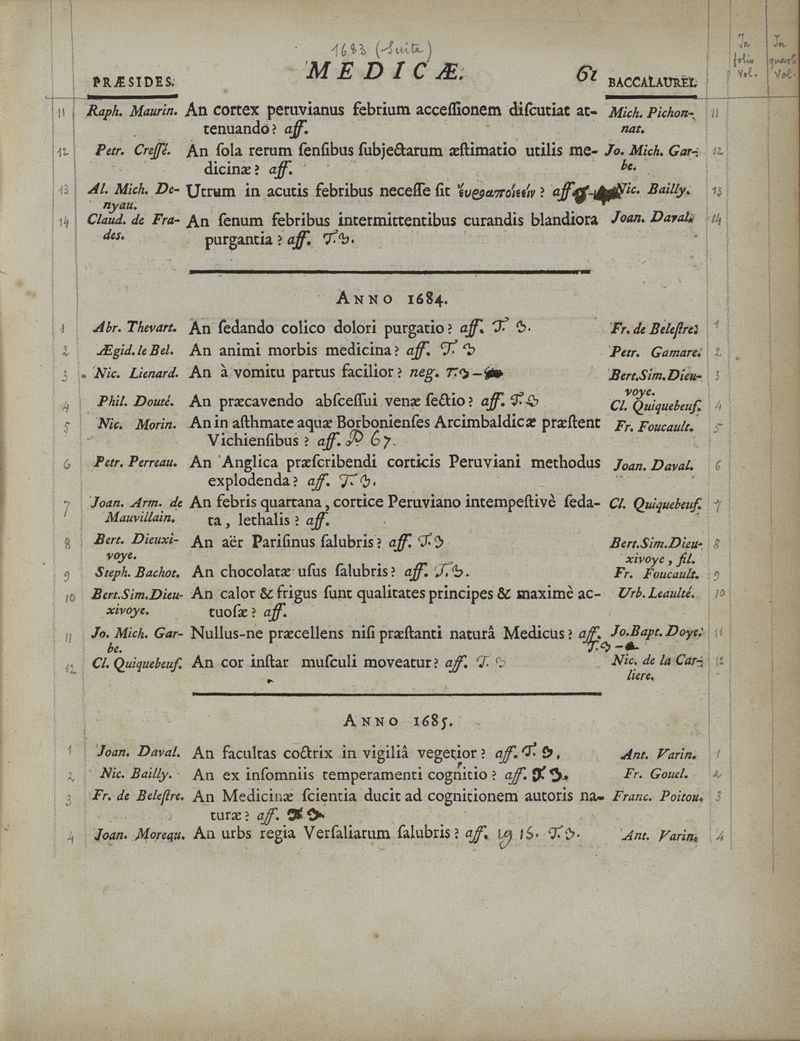 1683 (Suite)
In folio Vol.
In quarto Vol.
PRÆSIDES. MEDICÆ. 61 BACCALAUREI.
11 Raph. Maurin. An cortex peruvianus febrium accessionem discutiat at- Mich. Pichon- 11
tenuando? aff. nat.
12 Petr. Cressé. An sola rerum sensibus subjectarum æstimatio utilis me- Jo. Mich. Gar- 12
dicinæ? aff. be.
13 Al. Mich. De- Utrum in acutis febribus necesse sit ? aff. Nic. Bailly. 13
nyau.
14 Claud. de Fra- An senum febribus intermittentibus curandis blandiora Joan. Daval. 14
des. purgantia? aff.
ANNO 1684.
1 Abr. Thevart. An sedando colico dolori purgatio? aff. Fr. de Belestre. 1
2 Ægid. le Bel. An animi morbis medicina? aff. Petr. Gamare. 2
3 Nic. Lienard. An à vomitu partus facilior? neg. Bert. Sim. Dieu- 3
voye.
4 Phil. Douté. An præcavendo abscessui venæ sectio? aff. Cl. Quiquebeuf. 4
5 Nic. Morin. An in asthmate aquæ Borbonienses Arcimbaldicæ præstent Fr. Foucault. 5
Vichiensibus? aff. 67.
6 Petr. Perreau. An Anglica præscribendi corticis Peruviani methodus Joan. Daval. 6
explodenda? aff.
7 Joan. Arm. de An febris quartana, cortice Peruviano intempestivè seda- Cl. Quiquebeuf. 7
Mauvillain. ta, lethalis? aff.
8 Bert. Dieuxi- An aër Parisinus salubris? aff. Bert. Sim. Dieu- 8
voye. xivoye, fil.
9 Steph. Bachot. An chocolatæ usus salubris? aff. Fr. Foucault. 9
10 Bert. Sim. Dieu- An calor & frigus sunt qualitates principes & maximè ac- Urb. Leaulté. 10
xivoye. tuosæ? aff.
11 Jo. Mich. Gar- Nullus-ne præcellens nisi præstanti naturâ Medicus? aff. Jo. Bapt. Doye. 11
be.
12 Cl. Quiquebeuf. An cor instar musculi moveatur? aff. Nic. de la Car- 12
liere.
ANNO 1685.
1 Joan. Daval. An facultas coctrix in vigiliâ vegetior? aff. Ant. Varin. 1
2 Nic. Bailly. An ex insomniis temperamenti cognitio? aff. Fr. Gouel. 2
3 Fr. de Belestre. An Medicinæ scientia ducit ad cognitionem autoris na- Franc. Poitou. 3
turæ? aff.
4 Joan. Moreau. An urbs regia Versaliarum salubris? aff. Ant. Varin. 4